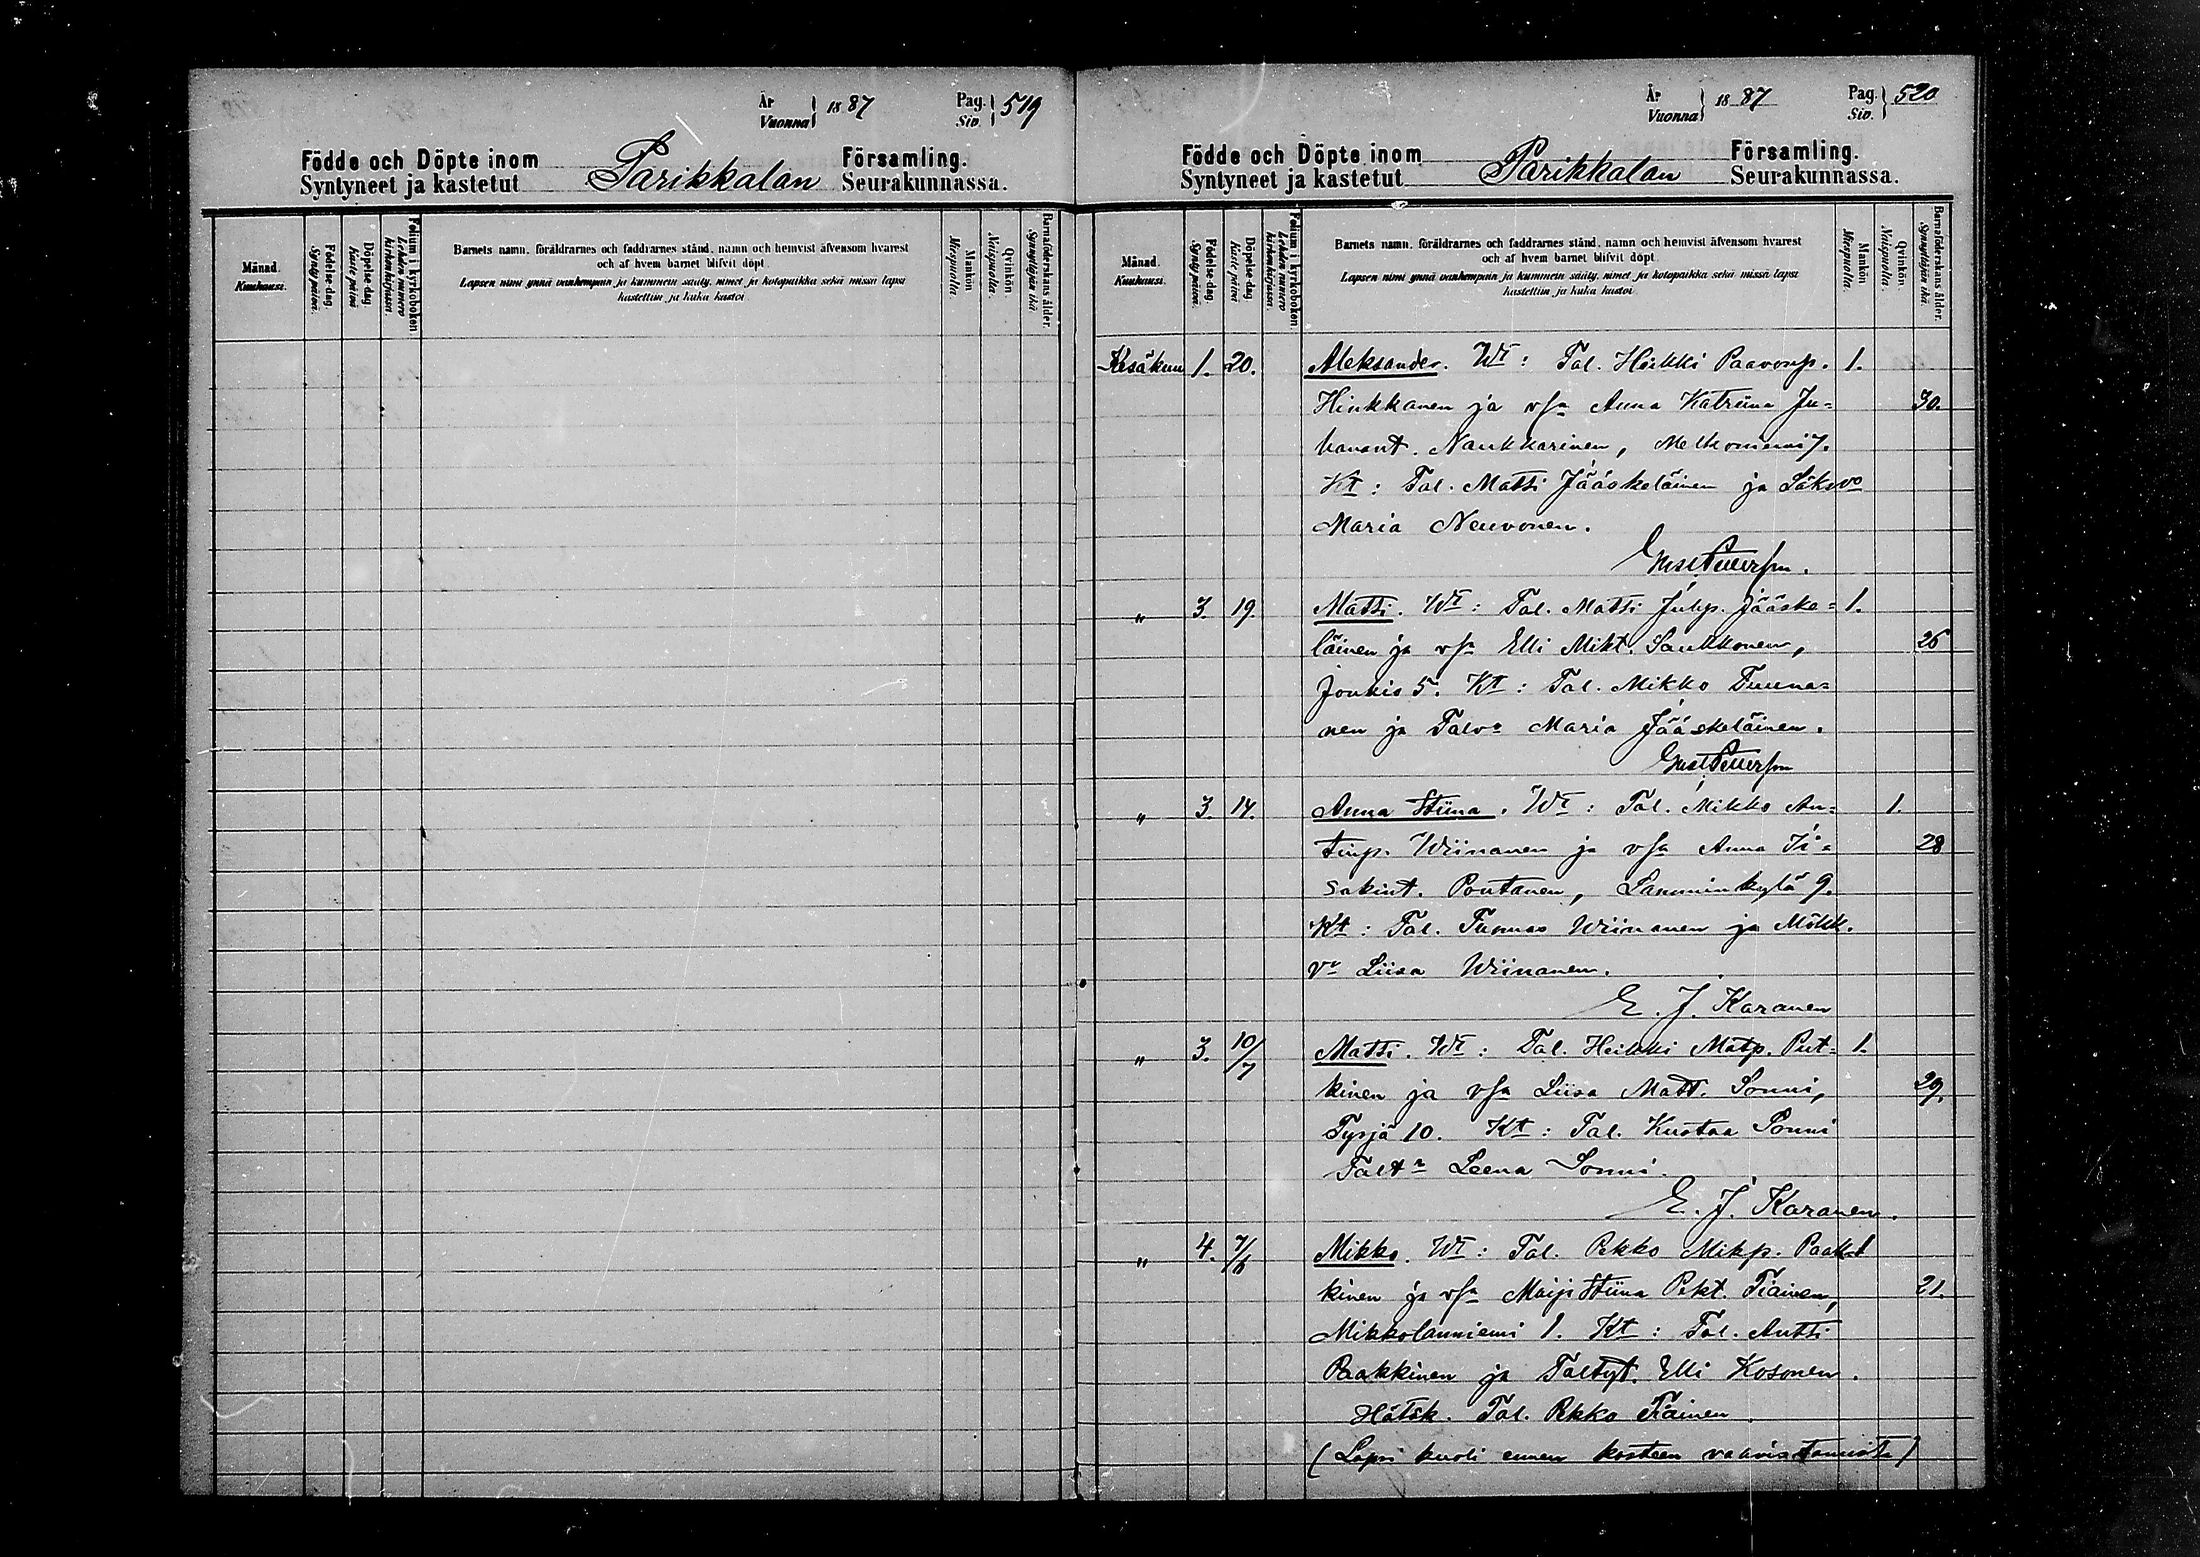 År
Vuonna 1887 Pag.
Siv. 519
Födde och Döpte inom Parikkalan Församling.
Syntyneet ja kastetut Seurakunnassa.
Månad.
Kuukausi.
Födelse-dag.
Synty päivä.
Döpelse-dag
Kaste päivä
Folium i kyrkoboken
Lehden numero
kirkonkirjassa.
Barnets namn, föräldrarnes och faddrarnes stånd, namn och hemvist äfvensom hvarest
och af hvem barnet blifvit döpt.
Lapsen nimi ynnä vanhempain ja kummein sääty, nimet ja kotopaikka sekä missä lapsi
kastettiin ja kuka kastoi
Mankön
Miespuolta.
Qvinkön.
Naispuolta.
Barnaföderskans ålder.
Synnyttäjän ikä.
År
Vuonna 1887 Pag.
Siv. 520
Födde och Döpte inom Parikkalan Församling.
Syntyneet ja kastetut Seurakunnassa.
Månad.
Kuukausi.
Födelse-dag.
Synty päivä.
Döpelse-dag
Kaste päivä
Folium i kyrkoboken
Lehden numero
kirkonkirjassa.
Barnets namn, föräldrarnes och faddrarnes stånd, namn och hemvist äfvensom hvarest
och af hvem barnet blifvit döpt.
Lapsen nimi ynnä vanhempain ja kummein sääty, nimet ja kotopaikka sekä missä lapsi
kastettiin ja kuka kastoi
Mankön
Miespuolta.
Qvinkön.
Naispuolta.
Barnaföderskans ålder.
Synnyttäjän ikä.
Kesäkuu 1. 20. Aleksander. Wt: Tal. Heikki Paavonp. 1.
Hinkkanen ja vsa Anna Katriina Ju= 30.
hanant. Naukkarinen, Melkoniemi 7.
Kt: Tal. Matti Jääskeläinen ja
Maria Neuvonen.
" 3. 19. Matti. Wt: Tal. Matti Juhp. Jääske= 1.
läinen ja vsa Elli Mikt. Saukkonen, 26
Joukio 5. Kt: Tal. Mikko Tuuna=
nen ja Talva Maria Jääskeläinen.
" 3. 14. Anna Stiina. Wt: Tal. Mikko An= 1.
tinp. Wiinanen ja vsa Anna Ii= 28
sakint. Pontanen, Lamminkylä 9.
Kt: Tal. Tuomas Wiinanen ja Mökk.
va Liisa Wiinanen.
E. J. Karanen
" 3. 10/7 Matti. Wt: Tal. Heikki Matp. Put= 1.
kinen ja vsa Liisa Matt. Sonni, 29.
Tyrjä 10. Kt: Tal. Kustaa Sonni
Talt Leena Sonni.
E. J. Karanen.
" 4. 7/6 Mikko. Wt: Tal. Pekko Mikp. Paak= 1
kinen ja vsa Maija Stiina Pekt. Tiainen, 21.
Mikkolanniemi 1. Kt: Tal. Antti
Paakkinen ja Taltyt. Elli Kosonen.
Hätäk. Tal. Pekko Tiainen.
(Lapsi kuoli ennen kasteen vahvistamista)